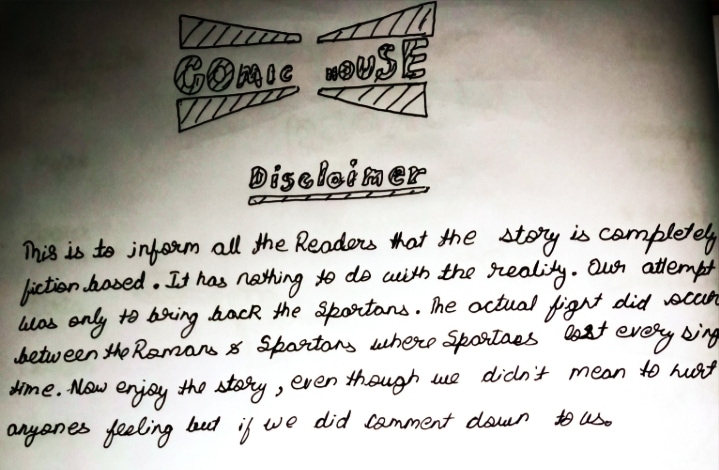 COMIC HOUSE
Disclaimer
This is to inform all the Readers that the story is completely
fiction based. It has nothing to do with the reality. Our attempt
was only to bring back the Spartans. The actual fight did occur
between the Romans & Spartans where Spartans lost every sing
time. Now enjoy the story, even though we didn't mean to hurt
anyones feeling but if we did comment down to us.